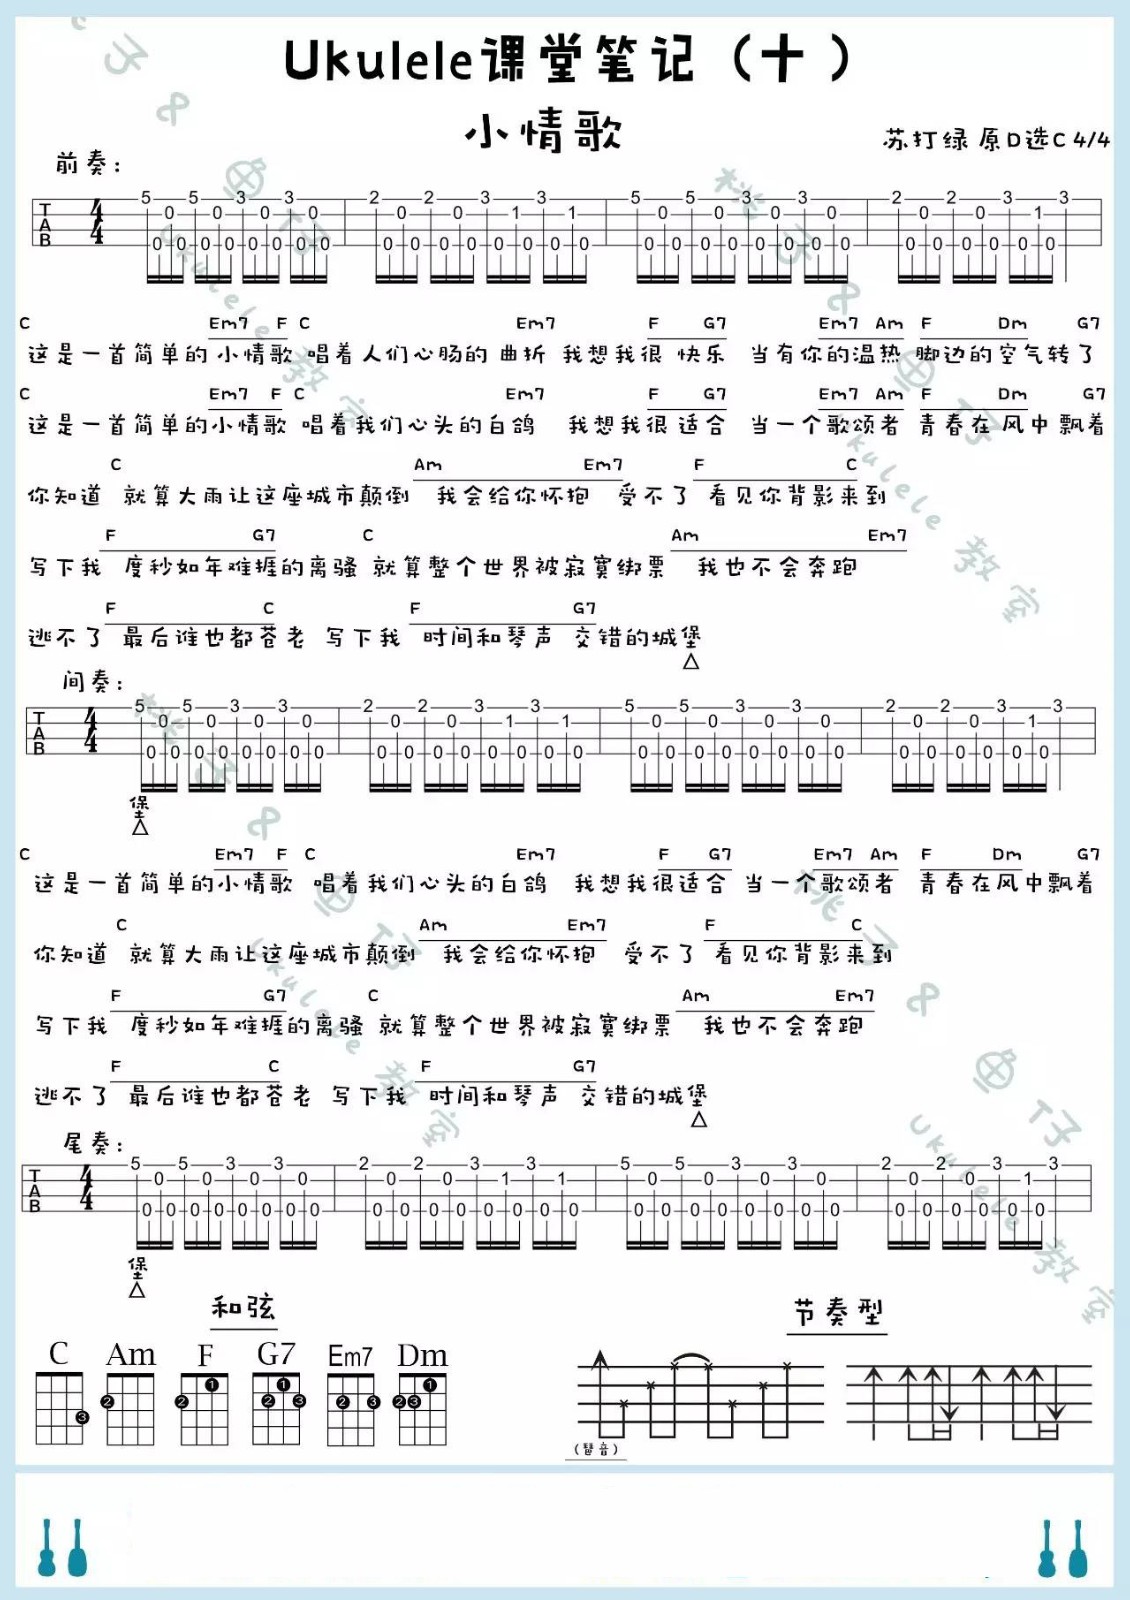 Ukulele课堂笔记（十）
小情歌
苏打绿 原D选C 4/4
前奏：
5 0 0 5 0 0 3 0 0 3 0 0 2 0 0 2 0 0 3 1 0 3 1 0 5 0 0 5 0 0 3 0 0 3 0 0 2 0 0 2 0 0 3 1 0 3
TAB 4/4
C Em7 F C Em7 F G7 Em7 Am F Dm G7
这是一首简单的 小情歌 唱着人们心肠的 曲折 我想我很 快乐 当有你的温热 脚边的空气转了
C Em7 F C Em7 F G7 Em7 Am F Dm G7
这是一首简单的小情歌 唱着我们心头的白鸽 我想我很适合 当一个歌颂者 青春在风中飘着
C Am Em7 F C
你知道 就算大雨让这座城市颠倒 我会给你怀抱 受不了 看见你背影来到
F G7 C Am Em7
写下我 度秒如年难捱的离骚 就算整个世界被寂寞绑票 我也不会奔跑
F C F G7
逃不了 最后谁也都苍老 写下我 时间和琴声 交错的城堡
△
间奏：
5 0 0 5 0 0 3 0 0 3 0 0 2 0 0 2 0 0 3 1 0 3 1 0 5 0 0 5 0 0 3 0 0 3 0 0 2 0 0 2 0 0 3 1 0 3
TAB 4/4
堡
△
C Em7 F C Em7 F G7 Em7 Am F Dm G7
这是一首简单的小情歌 唱着我们心头的白鸽 我想我很适合 当一个歌颂者 青春在风中飘着
C Am Em7 F C
你知道 就算大雨让这座城市颠倒 我会给你怀抱 受不了 看见你背影来到
F G7 C Am Em7
写下我 度秒如年难捱的离骚 就算整个世界被寂寞绑票 我也不会奔跑
F C F G7
逃不了 最后谁也都苍老 写下我 时间和琴声 交错的城堡
△
尾奏：
5 0 0 5 0 0 3 0 0 3 0 0 2 0 0 2 0 0 3 1 0 3 1 0 5 0 0 5 0 0 3 0 0 3 0 0 2 0 0 2 0 0 3 1 0 3
TAB 4/4
堡
△
和弦
节奏型
C Am F G7 Em7 Dm
3 2 2 1 2 1 3 2 3 2 3 1
（琶音）
桃子&鱼T仔
Ukulele教室